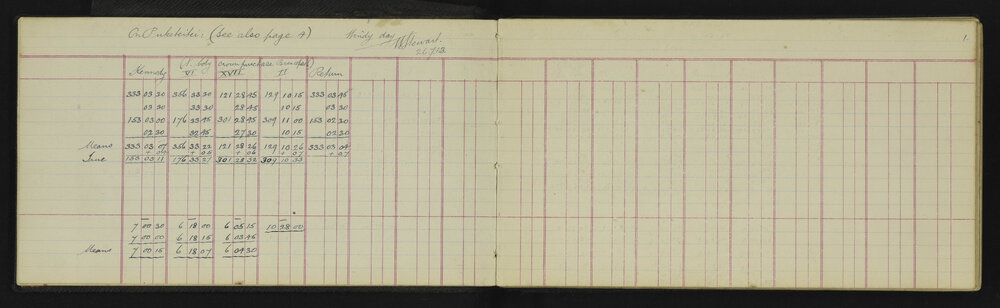 On Puketutu: (See also page 4) Windy day W Stewart. 1.
26.7.12
(A. body crown purchase
Kennedy VI XVII II Return
333 03 30 356 33 30 121 28 45 129 10 15 333 03 45
03 30 33 30 28 45 10 15 03 30
153 03 00 176 33 45 301 28 45 309 11 00 153 02 30
02 30 02 45 27 30 10 15 02 30
Means 333 03 07 356 33 22 121 28 26 129 10 26 333 03 04
+ 04 + 05 + 06 + 07 + 07
153 03 11 176 33 27 301 28 32 309 10 33
7 00 30 6 18 00 6 05 15 10 28 00
7 00 00 6 18 15 6 03 45
Means 7 00 15 6 18 07 6 04 30